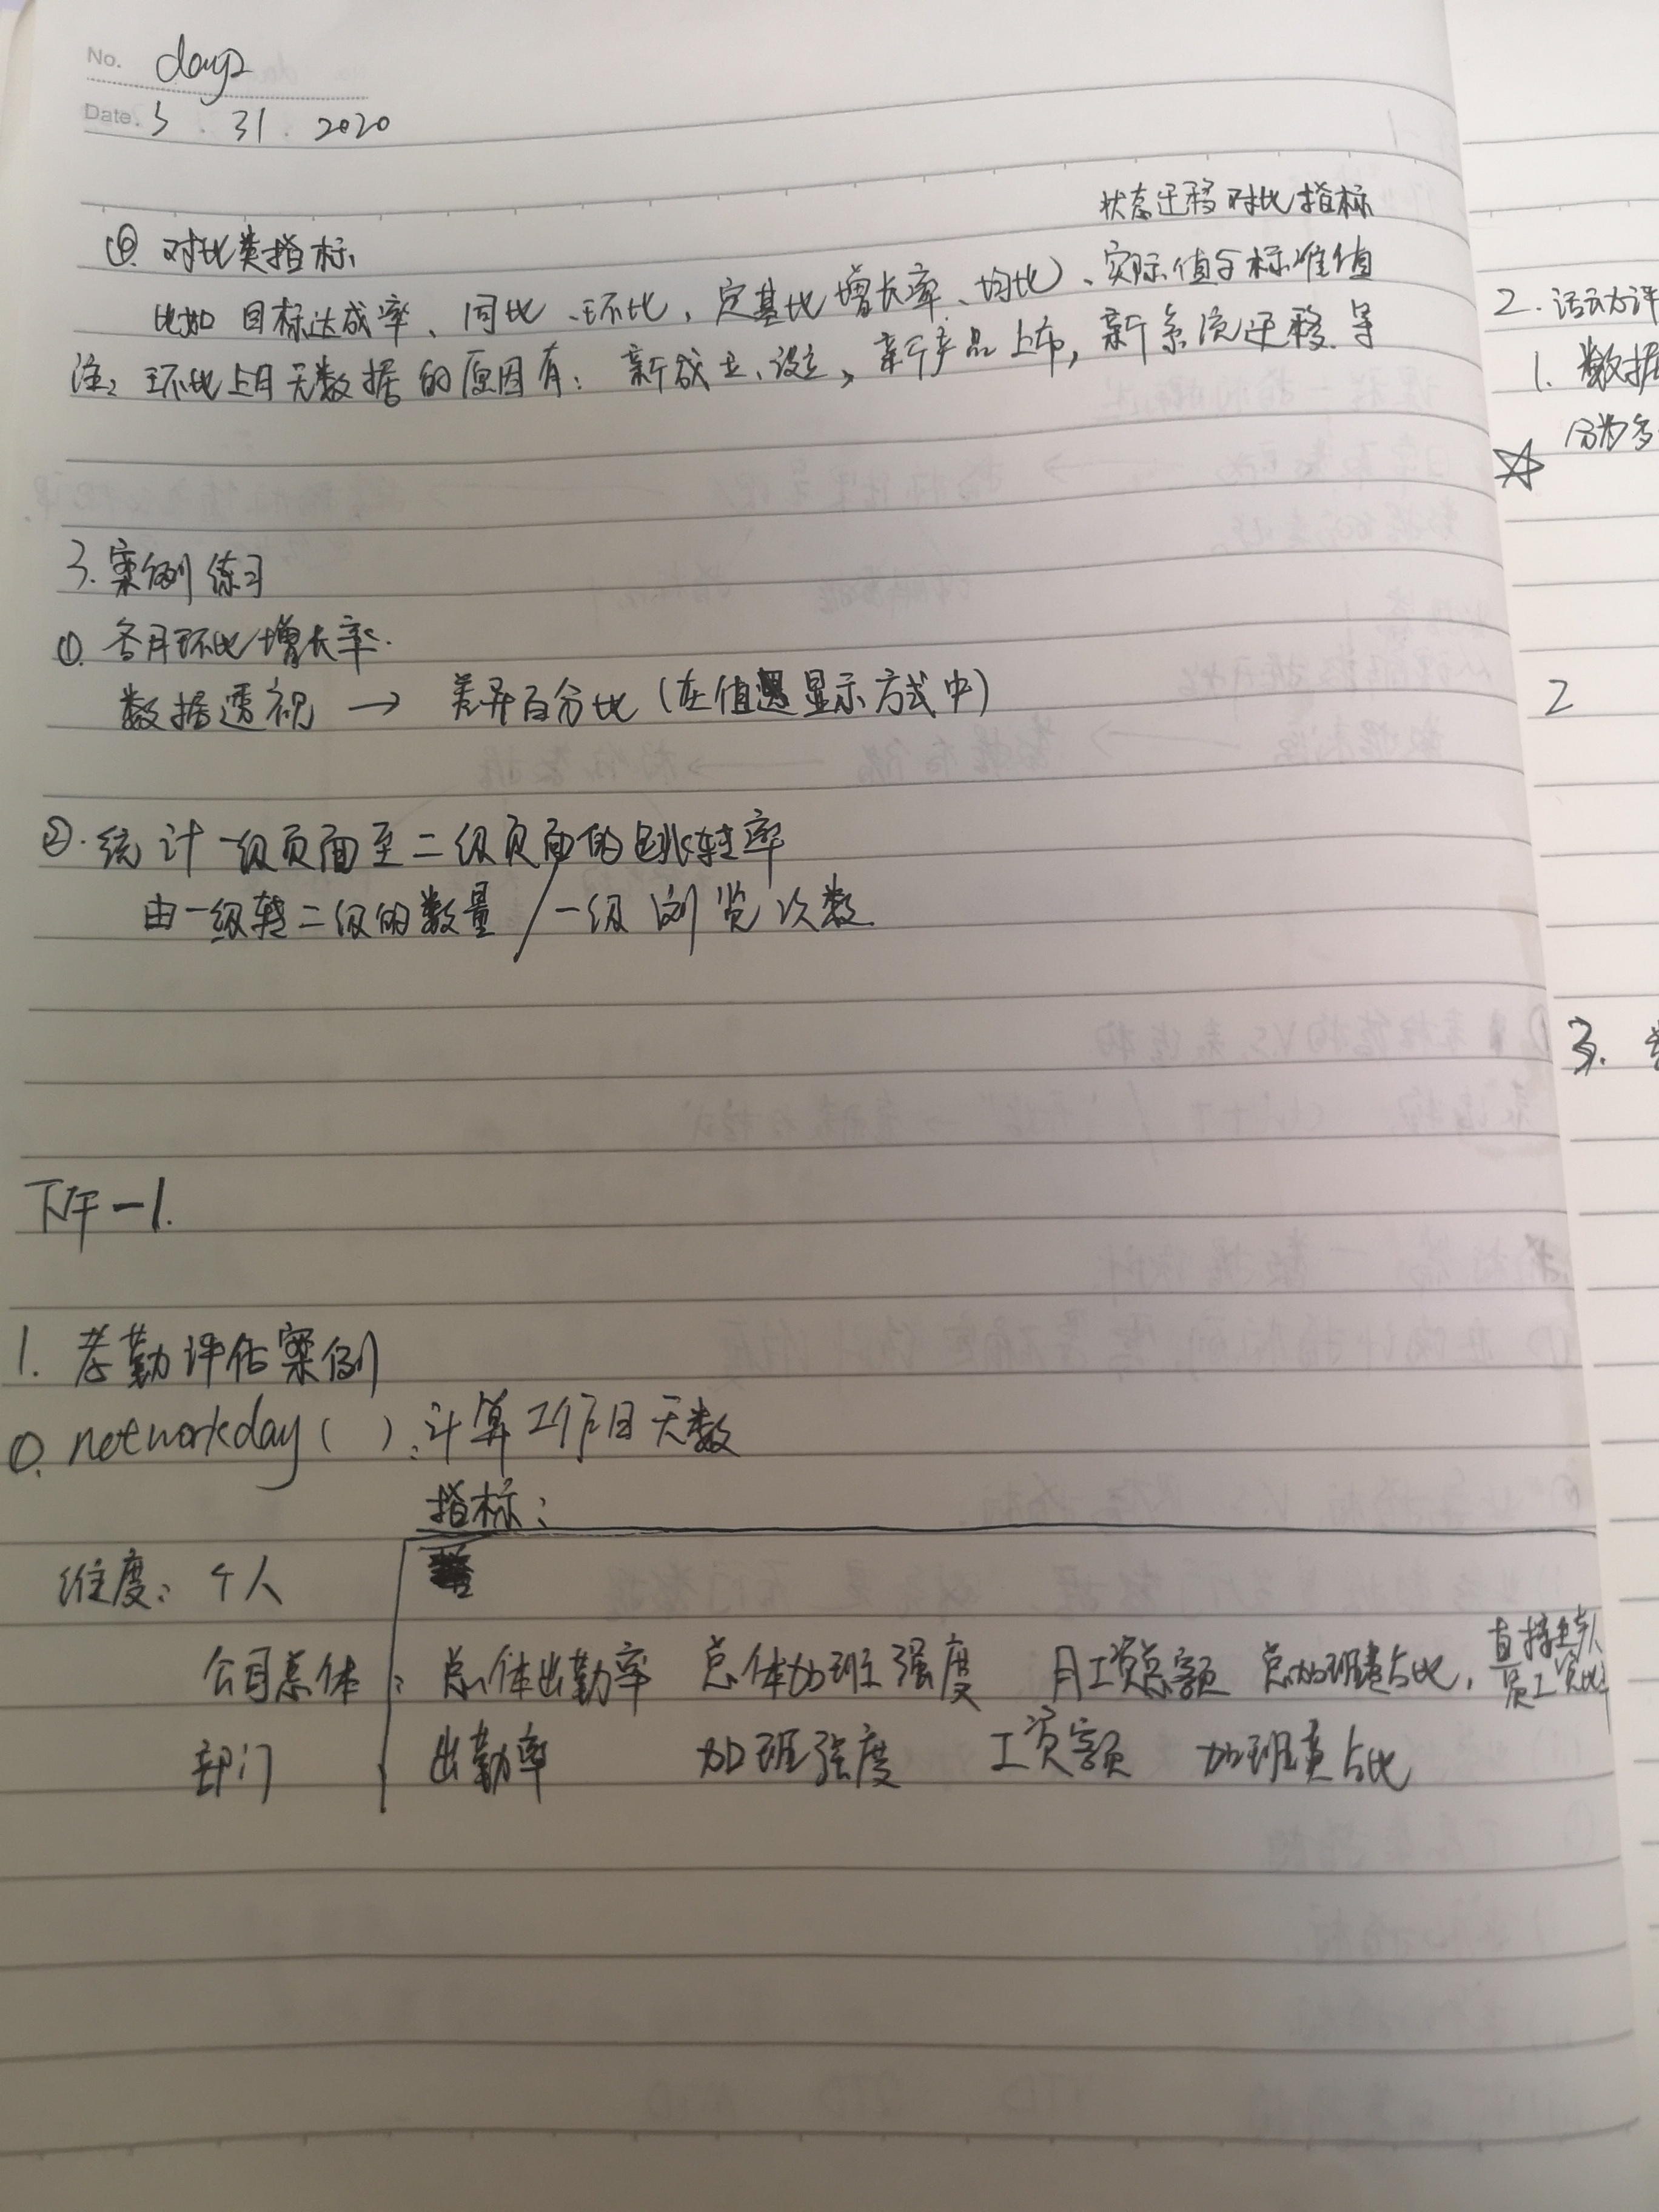 No. day2
Date. 3 . 31 . 2020
状态迁移对比指标
④ 对比类指标
比如 目标达成率、同比、环比、定基比增长率、均比)、实际值与标准值
注: 环比上月无数据的原因有: 新成立、设立, 新产品上市, 新系统迁移等
3. 案例练习
①. 各月环比增长率.
数据透视 → 差异百分比 (在值显示方式中)
②. 统计一级页面至二级页面的跳转率
由一级转二级的数量 / 一级浏览次数
下午-1.
1. 考勤评估案例
①. networkday ( ): 计算工作日天数
指标:
维度: 个人
公司总体 : 总体出勤率 总体加班强度 月工资总额 总加班费占比, 直接生产人员工资比率
部门 出勤率 加班强度 工资额 加班费占比
2. 活动评
1. 数据
分为多
2
3.